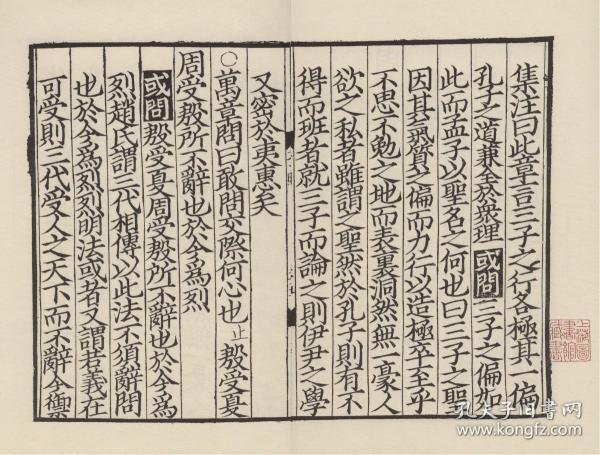 集注曰此章言三子之行各極其一偏
孔子之道兼全於衆理或問三子之偏如
此而孟子以聖名之何也曰三子之聖
因其氣質之偏而力行以造極卒至乎
不思不勉之地而表裏洞然無一毫人
欲之私者雖謂之聖然於孔子則有不
得而班者就三子而論之則伊尹之學
又密於夷惠矣
○萬章問曰敢問交際何心也止殷受夏
周受殷所不辭也於今爲烈
或問殷受夏周受殷所不辭也於今爲
烈趙氏謂三代相傳以此法不須辭問
也於今爲烈烈明法或者又謂若義在
可受則三代受人之天下而不辭今禦
上海圖書館藏書
孔夫子旧书网
www.kongfz.com